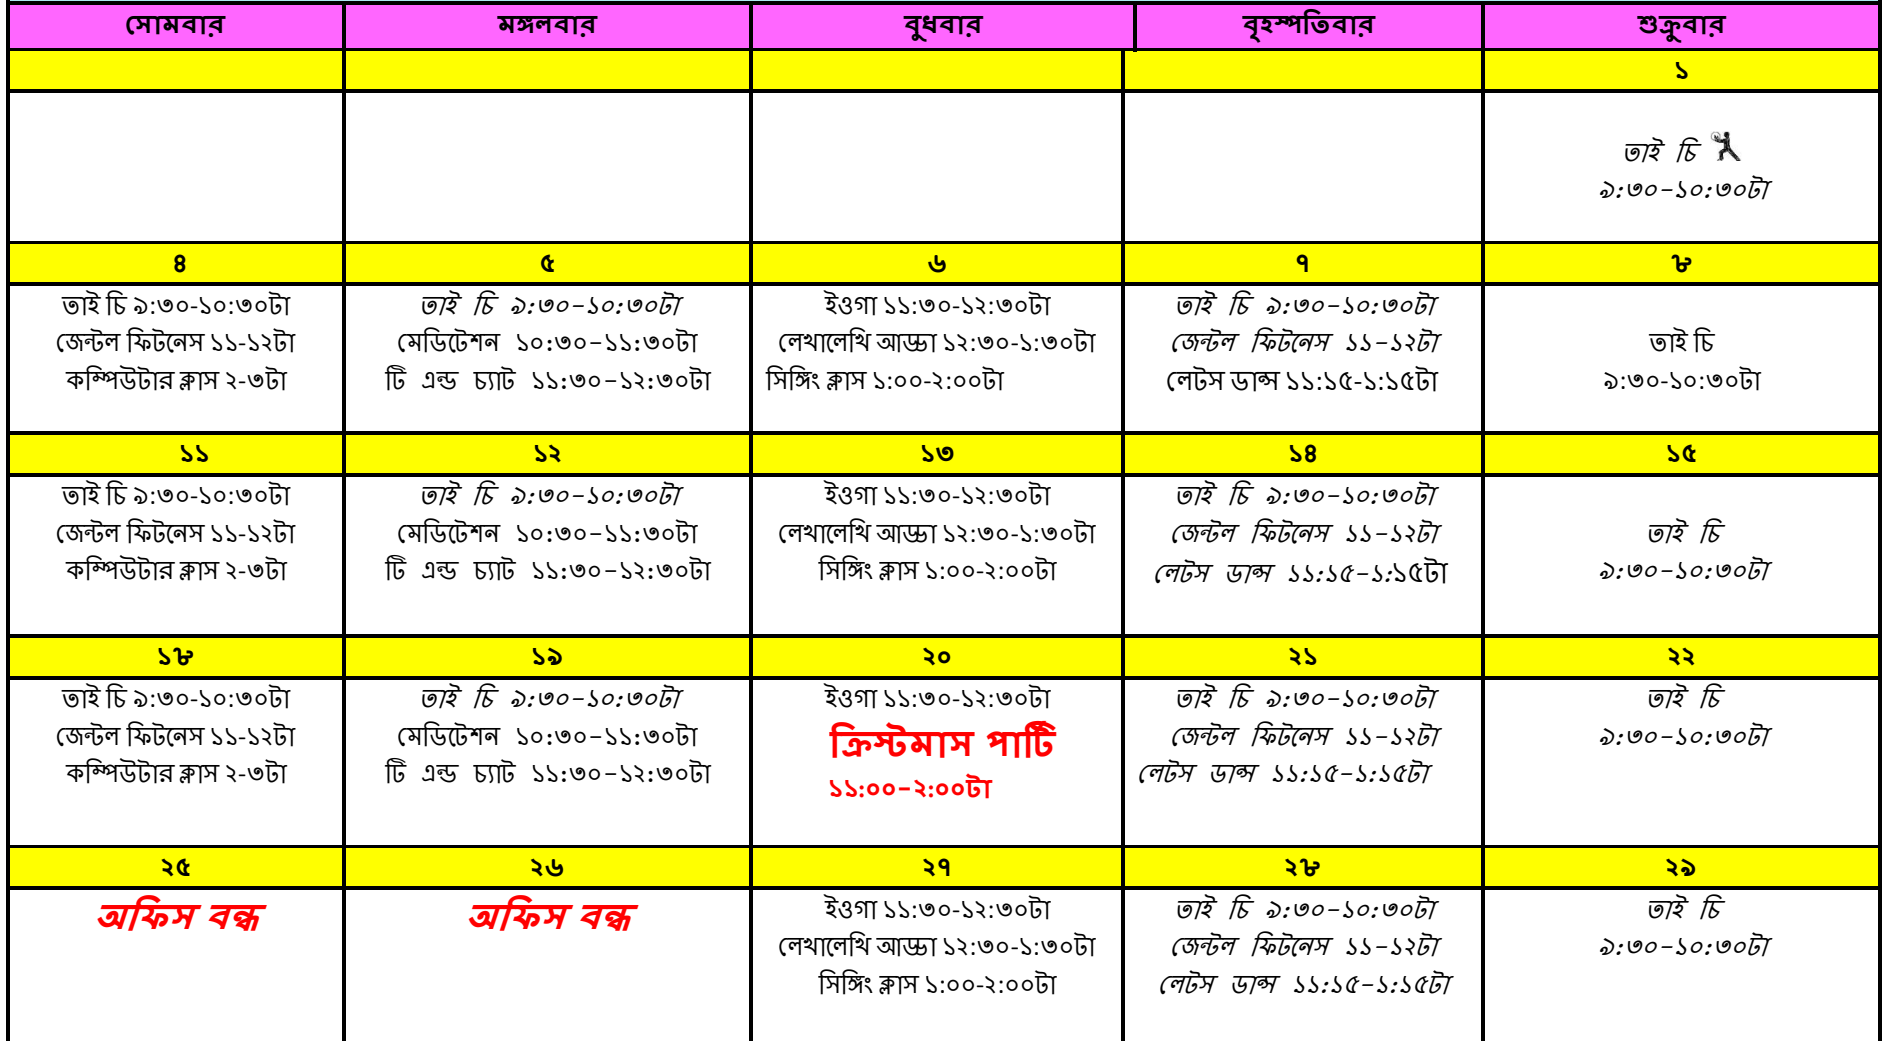 সোমবার মঙ্গলবার বুধবার বৃহস্পতিবার শুক্রুবার
১
তাই চি
৯:৩০-১০:৩০টা
৪ ৫ ৬ ৭ ৮
তাই চি ৯:৩০-১০:৩০টা
জেন্টল ফিটনেস ১১-১২টা
কম্পিউটার ক্লাস ২-৩টা
তাই চি ৯:৩০-১০:৩০টা
মেডিটেশন ১০:৩০-১১:৩০টা
টি এন্ড চ্যাট ১১:৩০-১২:৩০টা
ইওগা ১১:৩০-১২:৩০টা
লেখালেখি আড্ডা ১২:৩০-১:৩০টা
সিঙ্গিং ক্লাস ১:০০-২:০০টা
তাই চি ৯:৩০-১০:৩০টা
জেন্টল ফিটনেস ১১-১২টা
লেটস ডান্স ১১:১৫-১:১৫টা
তাই চি
৯:৩০-১০:৩০টা
১১ ১২ ১৩ ১৪ ১৫
তাই চি ৯:৩০-১০:৩০টা
জেন্টল ফিটনেস ১১-১২টা
কম্পিউটার ক্লাস ২-৩টা
তাই চি ৯:৩০-১০:৩০টা
মেডিটেশন ১০:৩০-১১:৩০টা
টি এন্ড চ্যাট ১১:৩০-১২:৩০টা
ইওগা ১১:৩০-১২:৩০টা
লেখালেখি আড্ডা ১২:৩০-১:৩০টা
সিঙ্গিং ক্লাস ১:০০-২:০০টা
তাই চি ৯:৩০-১০:৩০টা
জেন্টল ফিটনেস ১১-১২টা
লেটস ডান্স ১১:১৫-১:১৫টা
তাই চি
৯:৩০-১০:৩০টা
১৮ ১৯ ২০ ২১ ২২
তাই চি ৯:৩০-১০:৩০টা
জেন্টল ফিটনেস ১১-১২টা
কম্পিউটার ক্লাস ২-৩টা
তাই চি ৯:৩০-১০:৩০টা
মেডিটেশন ১০:৩০-১১:৩০টা
টি এন্ড চ্যাট ১১:৩০-১২:৩০টা
ইওগা ১১:৩০-১২:৩০টা
ক্রিস্টমাস পার্টি
১১:০০-২:০০টা
তাই চি ৯:৩০-১০:৩০টা
জেন্টল ফিটনেস ১১-১২টা
লেটস ডান্স ১১:১৫-১:১৫টা
তাই চি
৯:৩০-১০:৩০টা
২৫ ২৬ ২৭ ২৮ ২৯
অফিস বন্ধ
অফিস বন্ধ
ইওগা ১১:৩০-১২:৩০টা
লেখালেখি আড্ডা ১২:৩০-১:৩০টা
সিঙ্গিং ক্লাস ১:০০-২:০০টা
তাই চি ৯:৩০-১০:৩০টা
জেন্টল ফিটনেস ১১-১২টা
লেটস ডান্স ১১:১৫-১:১৫টা
তাই চি
৯:৩০-১০:৩০টা